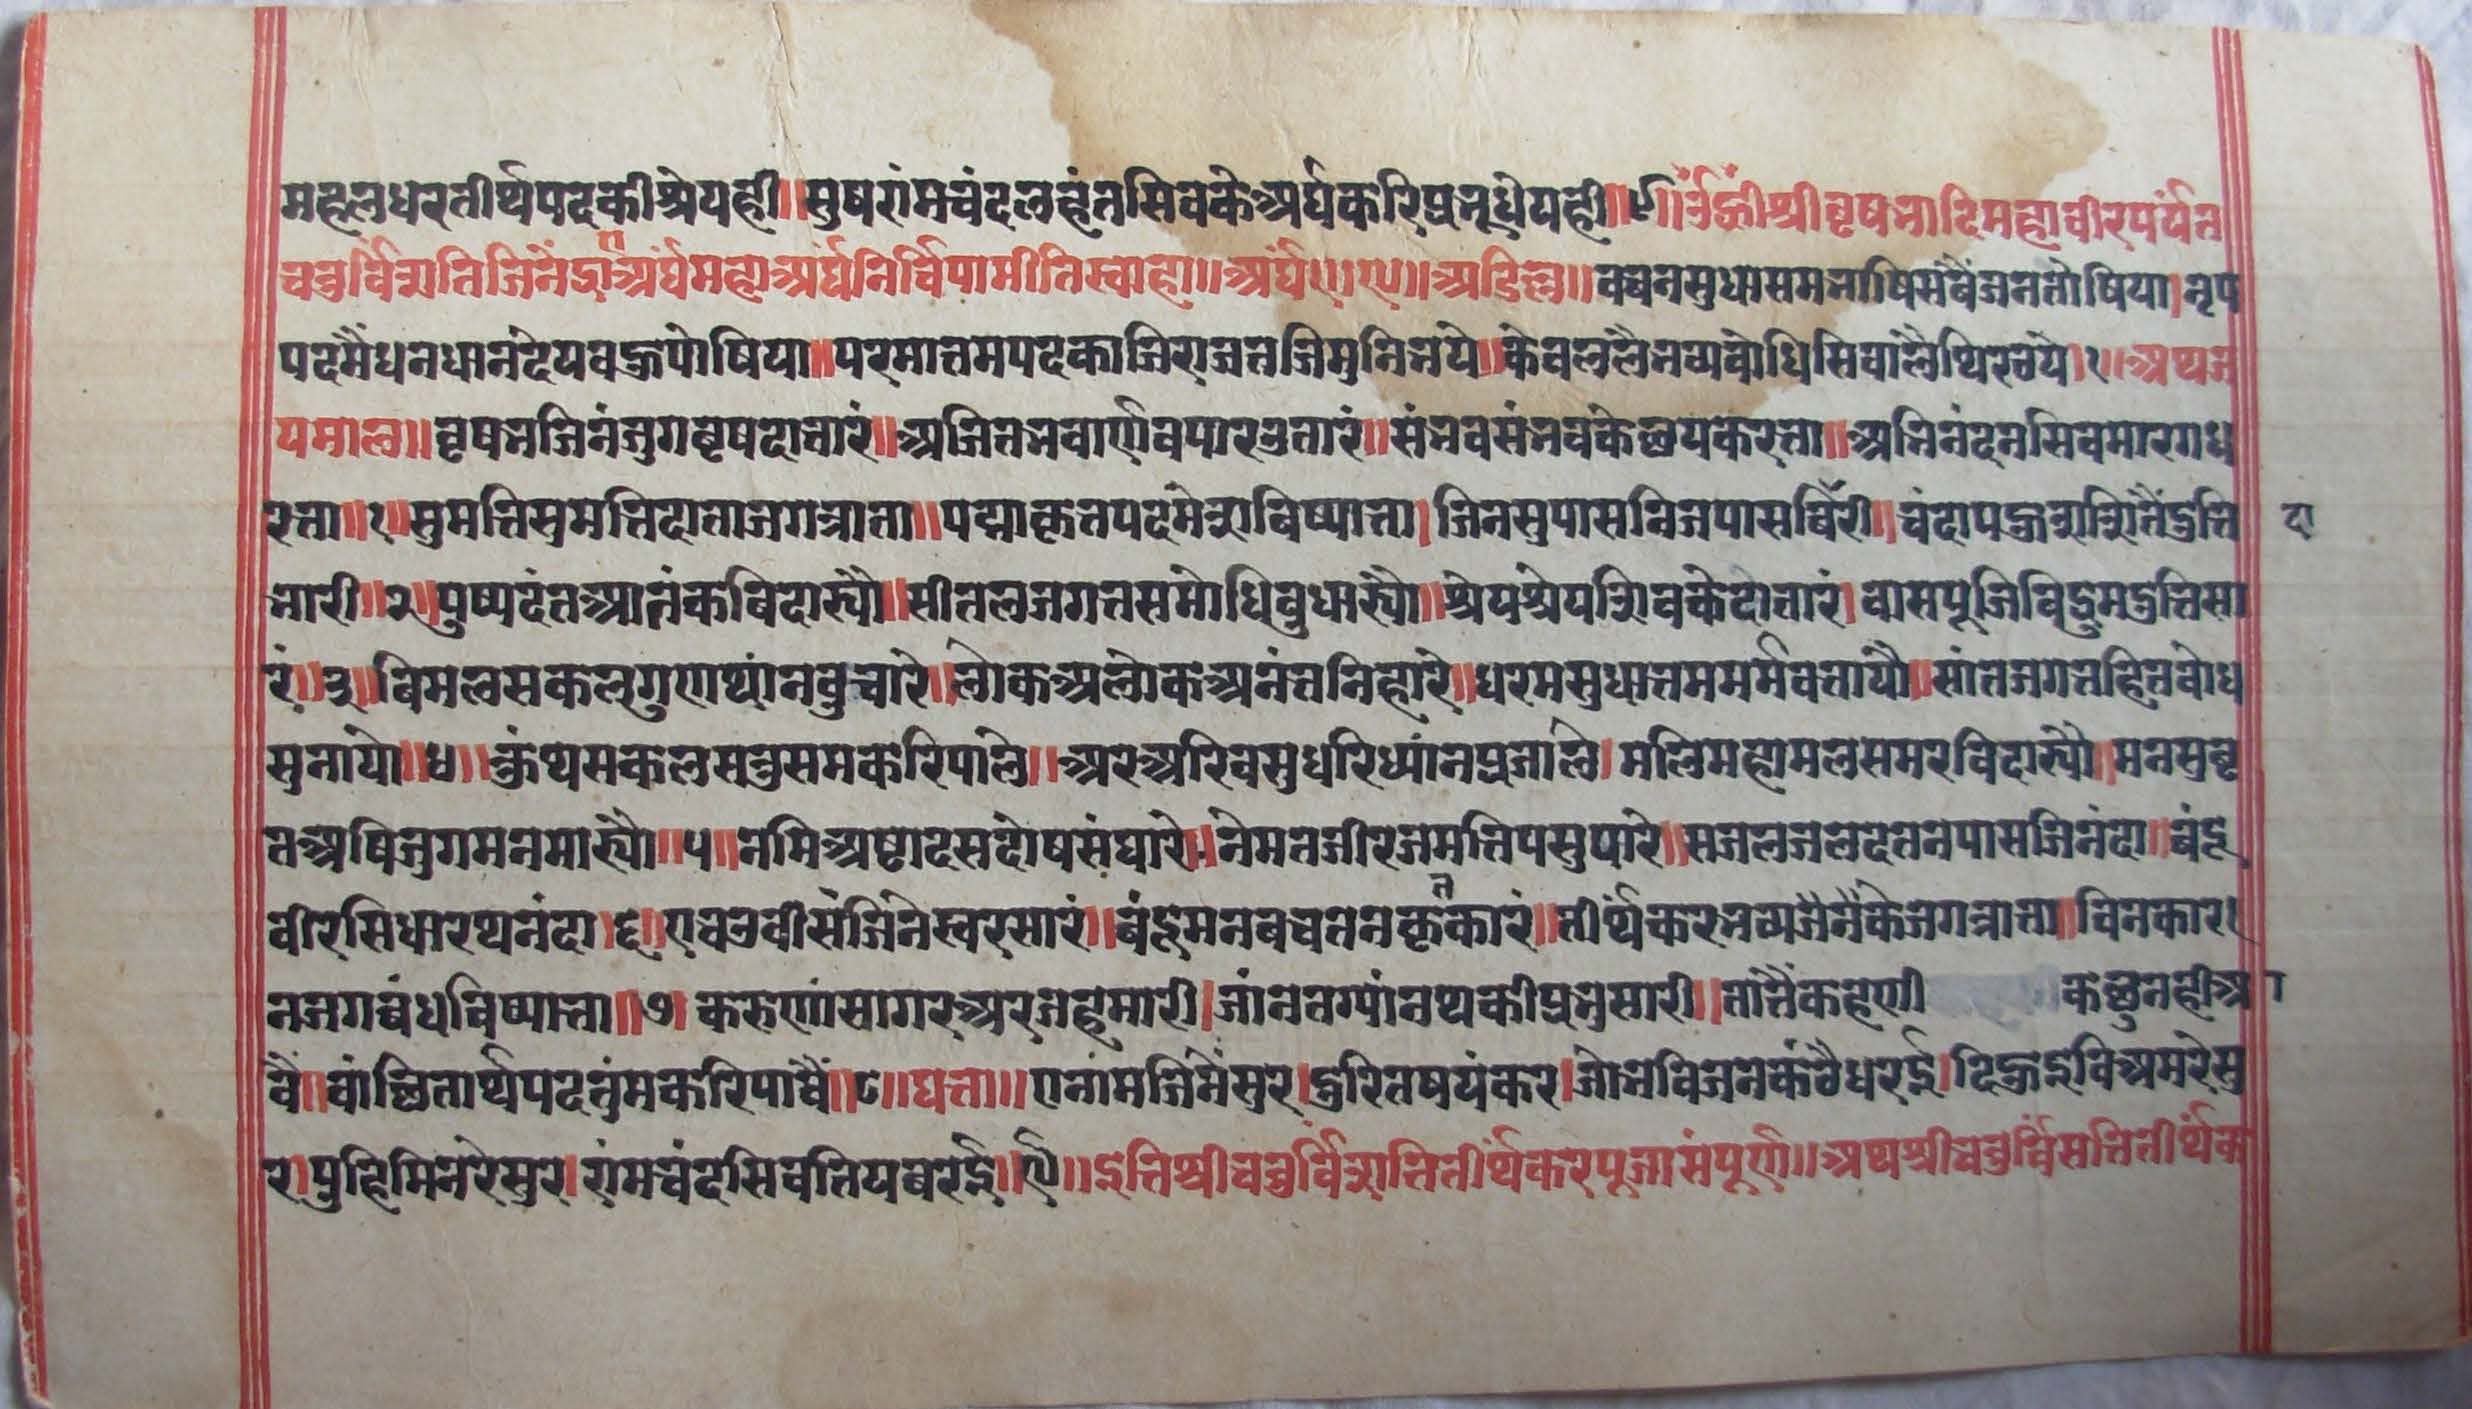 महलधरतीर्थपदकीश्रेयही॥सुषरांमचंदलहंतसिवकेअर्घकरिप्रभूधेयही॥९॥ॐह्रींश्रीवृषभादिमहावीरपर्यंत
चतुर्विंशतिजिनेंद्राअर्घंमहाअर्घंनिर्विपामीतिस्वाहा॥अर्घं॥अडिल्ल॥वचनसुधासमभाषिसबैंजनतोषिया।नृप
पदमैंधनधानंदेयबहुपोषिया॥परमातमपदकाजिराजतजिमुनिभये॥केवललैभव्यबोधिसिवालैथिरठये।१॥अथज
यमाल॥वृषभजिनंजुगवृषदातारं॥अजितभवार्णवपारउतारं॥संभवसंभवकेछयकरता॥अभिनंदनसिवमारगध
रता॥१॥सुमतिसुमतिदाताजगत्राता॥पद्माकृतपदमेशबिष्याता।जिनसुपासनिजपासबिंरी॥चंदापहुशशितैंदुति
दा
भारी॥२॥पुष्पदंतआतंकबिदारयौ॥सीतलजगतसमोधिवुधारयौ॥श्रेयश्रेयशिवकेदातारं।वासपूजिविद्रुमदुतिसा
रं॥३॥बिमलसकलगुणथांनवुचारे॥लोकअलोकअनंतनिहारे॥धरमसुधातममर्मवतायौ॥सांतजगतहितबोध
सुनायो॥४॥कुंथसकलसत्रुसमकरिपाले॥अरअरिवसुधरिध्यांनप्रजाले।मलिमहामलसमरविदारयौ।मनसुवृ
तअषिजुगमनमारयौ॥५॥नमिअष्टादसदोषसंघारे॥नेमतजीरजमतिपसुपारे॥सजलजलदतनपासजिनंदा॥बंदू
वीरसिधारथनंदा।६॥एचउवीसंजिनेस्वरसारं॥बंदूमनबचतनकृतकारं॥तीर्थंकरभव्यजैनैंकेजगत्राता॥विनकार
नजगबंधविष्याता॥७॥करुणांसागरअरजहमारी।जांनतग्यांनथकीप्रभुसारी॥तातैंकहणी कछुनहीअ
ा
वैं॥वांछितार्थपदतुंमकरिपावैं॥८॥घत्ता॥एनांमजिनेंसुर।दुरितषयंकर।जोभविजनकंठैधरई।दिहुइविअमरेसु
र।पुहिमिनरेसुर।रांमचंदसिवतियबरई॥९॥इतिश्रीचतुर्विंशतितीर्थंकरपूजासंपूर्ण॥अथश्रीचतुर्विंसतितीर्थंक